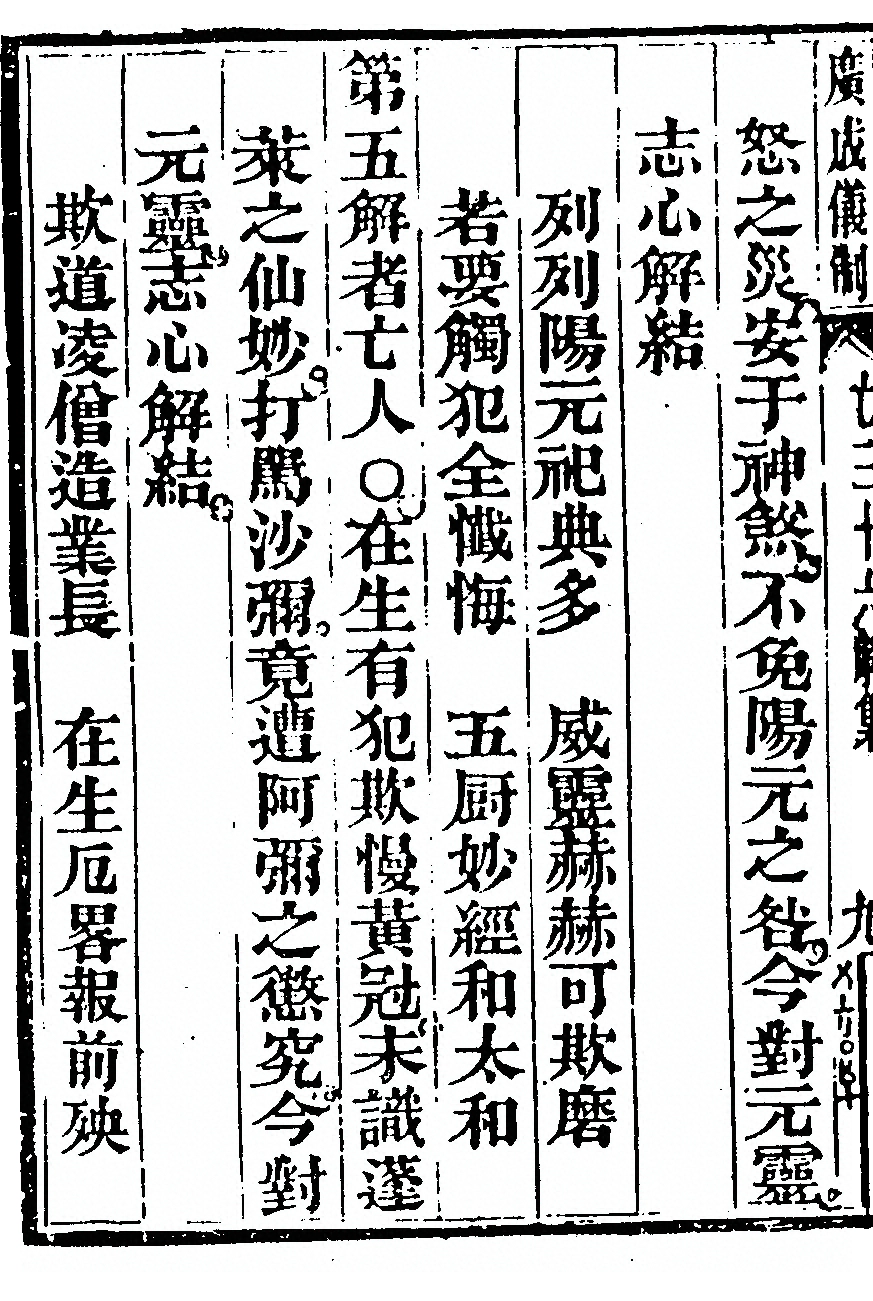 廣成儀制
怒之災安于神煞不免陽元之咎今對元靈
志心解結
列列陽元祀典多　威靈赫赫可欺磨
若要觸犯全懺悔　五厨妙經和太和
第五解者亡人〇在生有犯欺慢黃冠未識蓬
萊之仙妙打罵沙彌竟遭阿彌之懲究今對
元靈志心解結
欺道凌僧造業長　在生厄畧報前殃